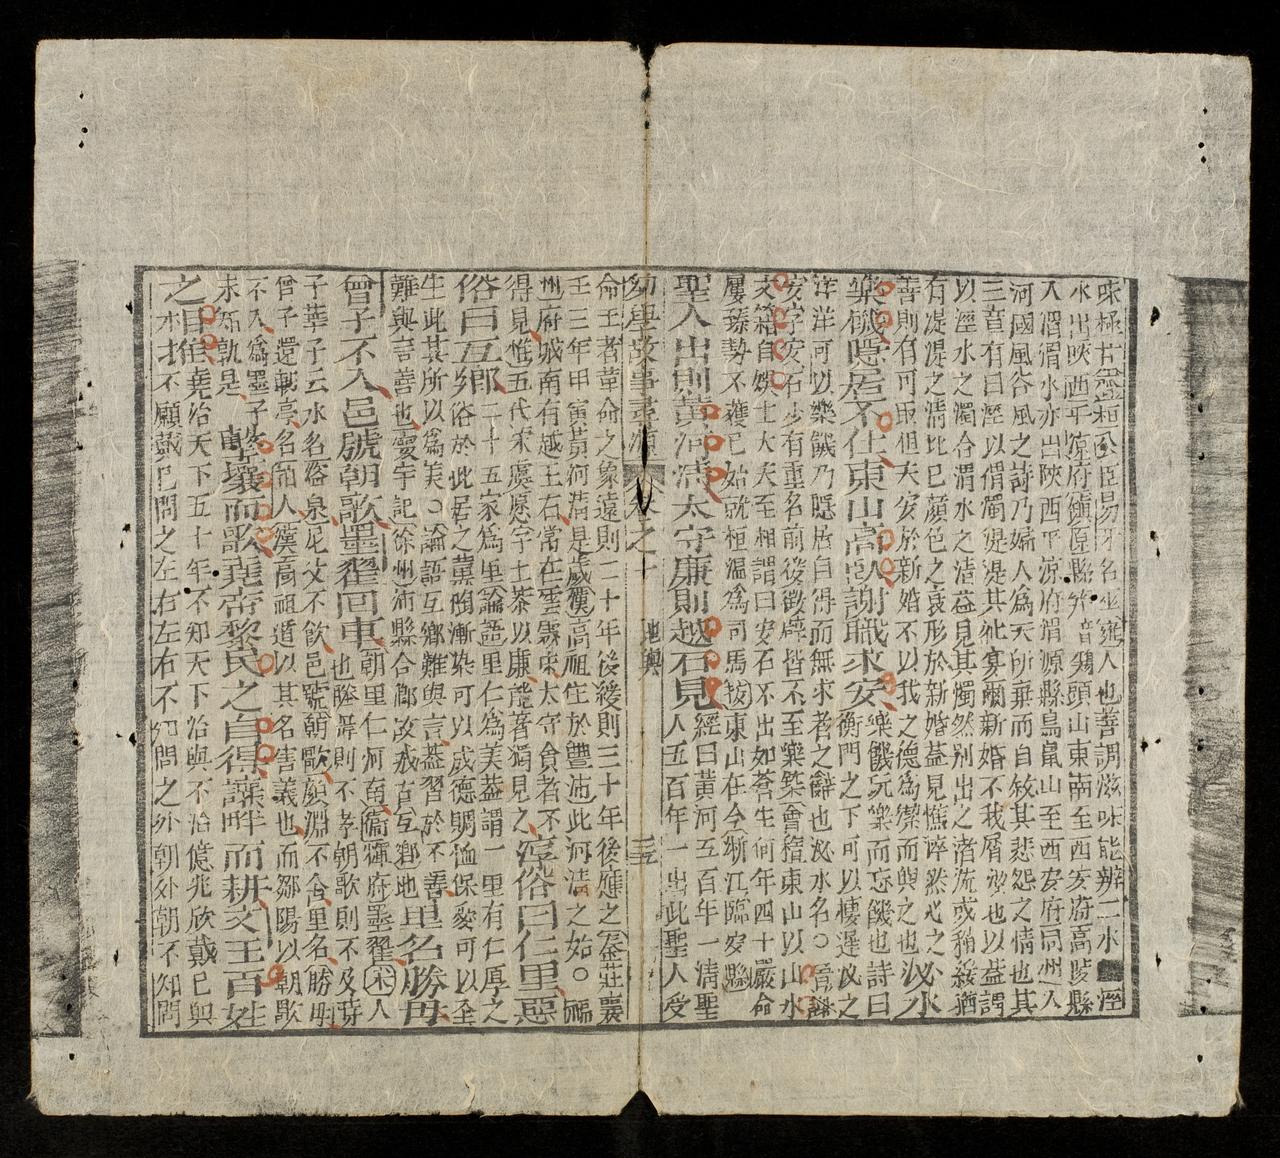 味極甘盤桓公臣易牙名巫雍人也善調滋味能辨二水涇
水出陝西平凉府鎮原縣笄音鷄頭山東南至西安府高陵縣
入渭渭水亦出陝西平凉府渭源縣鳥鼠山至西安府同州入
河國風谷風之詩乃婦人爲夫所棄而自敘其悲怨之情也其
三章有曰涇以渭濁湜湜其沚宴爾新婚不我屑以也以益謂
以涇水之濁合渭水之清益見其燭然别出之渚流或稍緩猶
有湜湜之清比已顔色之衰形於新婚益見憔悴然心之
善則有可取但夫安於新婚不以我之德爲潔而與之也泌水
樂饑隱居不仕東山高臥謝職求安樂饑玩樂而忘饑也詩曰
衡門之下可以棲遲泌之
洋洋可以樂饑乃隱居自得而無求者之辭也泌水名○晉謝
安字安石少有重名前後徵辟皆不至樂築會稽東山以山水
文籍自娛士大夫至相謂曰安石不出如蒼生何年四十嚴命
屢臻勢不獲已始就桓温爲司馬按東山在今浙江臨安縣
聖人出則黃河清太守廉則越石見經曰黃河五百年一清聖
人五百年一出此聖人受
幼學故事尋源 卷之十 地輿 三
命王者革命之象遠則二十年後綏則三十年後應之
王三年甲寅黃河清是歲漢高祖生於豐沛此河清之始○福
州府城南有越王石常在雲霧中太守貪者不
得見惟五代宋虞愿字士恭以廉能著獨見之淳俗曰仁里惡
俗曰互鄉二十五家爲里論語里仁爲美蓋謂一里有仁厚之
俗於此居之薰陶漸染可以成德賙恤保愛可以全
生此其所以爲美○論語互鄉難與言蓋習於不善
難與言善也寰宇記徐州沛縣合鄉故城古互鄉地里名勝母
曾子不入邑號朝歌墨翟回車朝里仁河南衛輝府墨翟宋人
也勝母則不孝朝歌則不及時
子華子云水名盜泉尼父不飲邑號朝歌顔淵不舍里名勝母
曾子還軔亭名柏人漢高祖道以其名害義也而鄒陽以朝歌
不入爲墨子
未知孰是擊壤而歌堯帝黎民之自得讓畔而耕文王百姓
之相推堯治天下五十年不知天下治與不治億兆欣戴己與
不顧戴己問之左右左右不知問之外朝外朝不知問